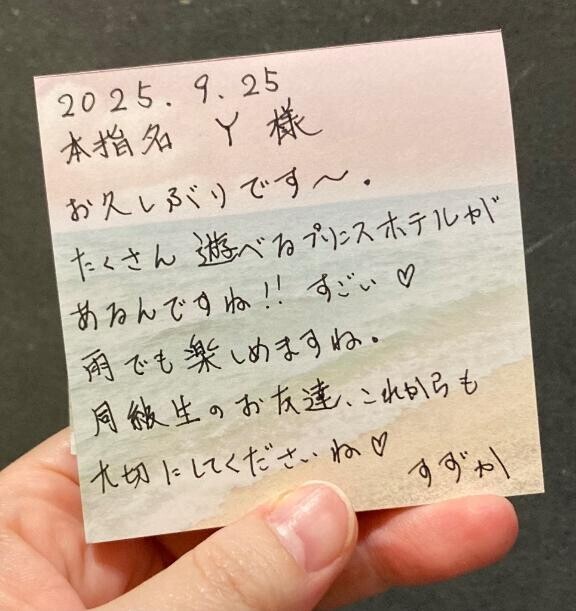 2025.9.25
本指名 Y 様
お久しぶりです〜.
たくさん遊べるプリンスホテルが
あるんですね!! すごい♡
雨でも楽しめますね。
同級生のお友達、これからも
大切にしてくださいね♡
すずか